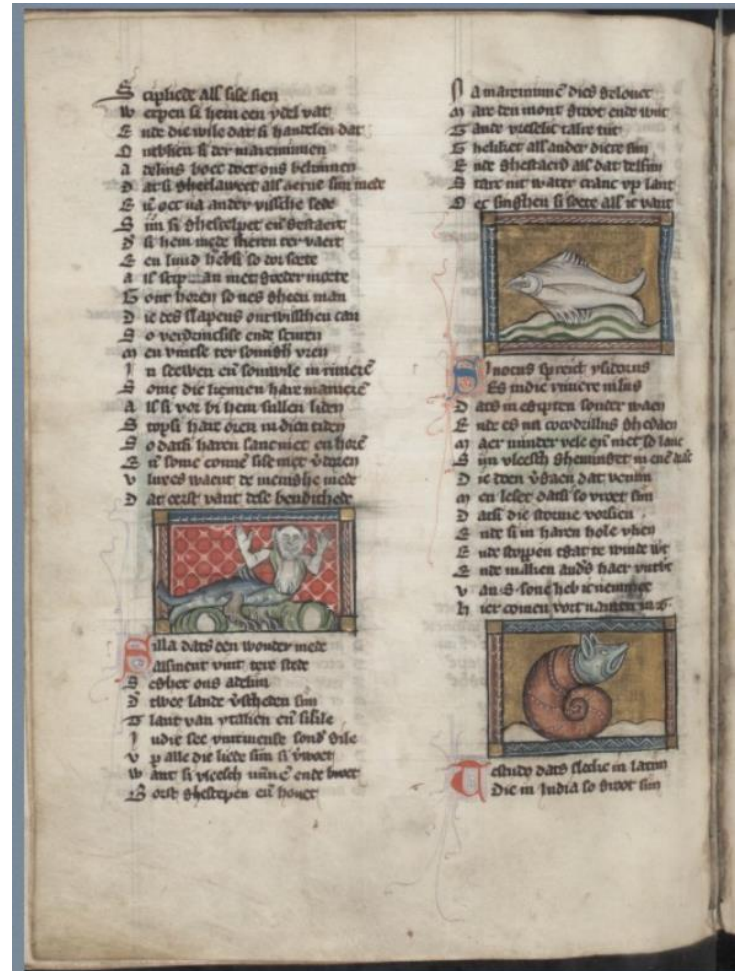 S cipliede alsi sise sien
W erpen si hem een ydel vat
E nde die wile dat si handelen dat
O ntvlien si der mareminnen
A delijns boec doet ons bekinnen
D at si gheclaweert als aerne sijn mede
E n oec na ander vissche sede
S ijn si ghescelpet en ghestaert
D si hem mede stieren ter vaert
E en luud hebsi so
A ls scip an met groeter moete
T ont horen so nes gheen man
D ie des slapens ontwisschen can
S o verdrincsise ende sceuren
M en vintse ter sonnigh vren
I n seewen en somwile in riviere
S ome die kennen hare maniere
A lsi vor bi hem sullen liden
S topsi hare oren in dien tiden
S o datsi haren sanc niet en hore
E n some conne sise niet
V lives waent de menighe mede
D at eerst vant dese behendichede
S illa dats een wonder mede
Alsment vint tere stede
S eghet ons adelin
D twee lande versceden sijn
T lant van ytalien en sisile
I n die see
V p alle die liede sijn si verwoet
W ant si vleesch minne ende bloet
B orst ghescepen en hovet
N a mareminne dies ghelovet
M are den mont groet ende wijt
T ande vreselic talre tijt
G heliket als ander diere sijn
E nde ghestaerd als dat delfijn
S tarc int water cranc up lant
O ec singhen si soete als ict vant
S inocus spreict ysidorus
Es in die riviere nilus
D ats in egipten sonder waen
E nde es na cocodrillus ghedaen
M aer minder vele en niet so lanc
S ijn vleesch gheminget in ene dranc
D ie doen vergaen dat venijn
M en leset datsi so vroet sijn
D atsi die storme vorsien
E nde si in haren hole vlien
E nde stoppen tgat te winde wert
E nde maken anders haer
V an S sone heb ic nemmeer
H ier comen vort namen in T
T estudo dats slecke in latijn
Die in India so groot sijn